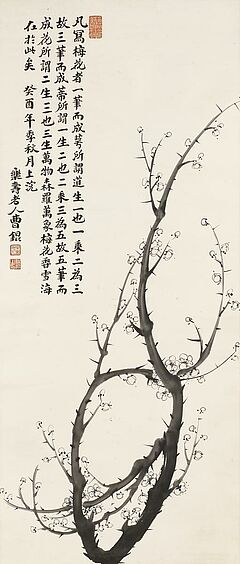 凡寫梅花者一筆而成萼所謂道生一也一乘二為三
故三筆而成蒂所謂一生二也二乘三為五故五筆而
成花所謂二生三也三生萬物森羅萬象梅花香雪海
在於此矣 癸酉年季秋月上浣
樂壽老人曹錕